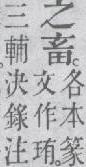 之畜。
各本篆
文作珛。
三輔決錄注